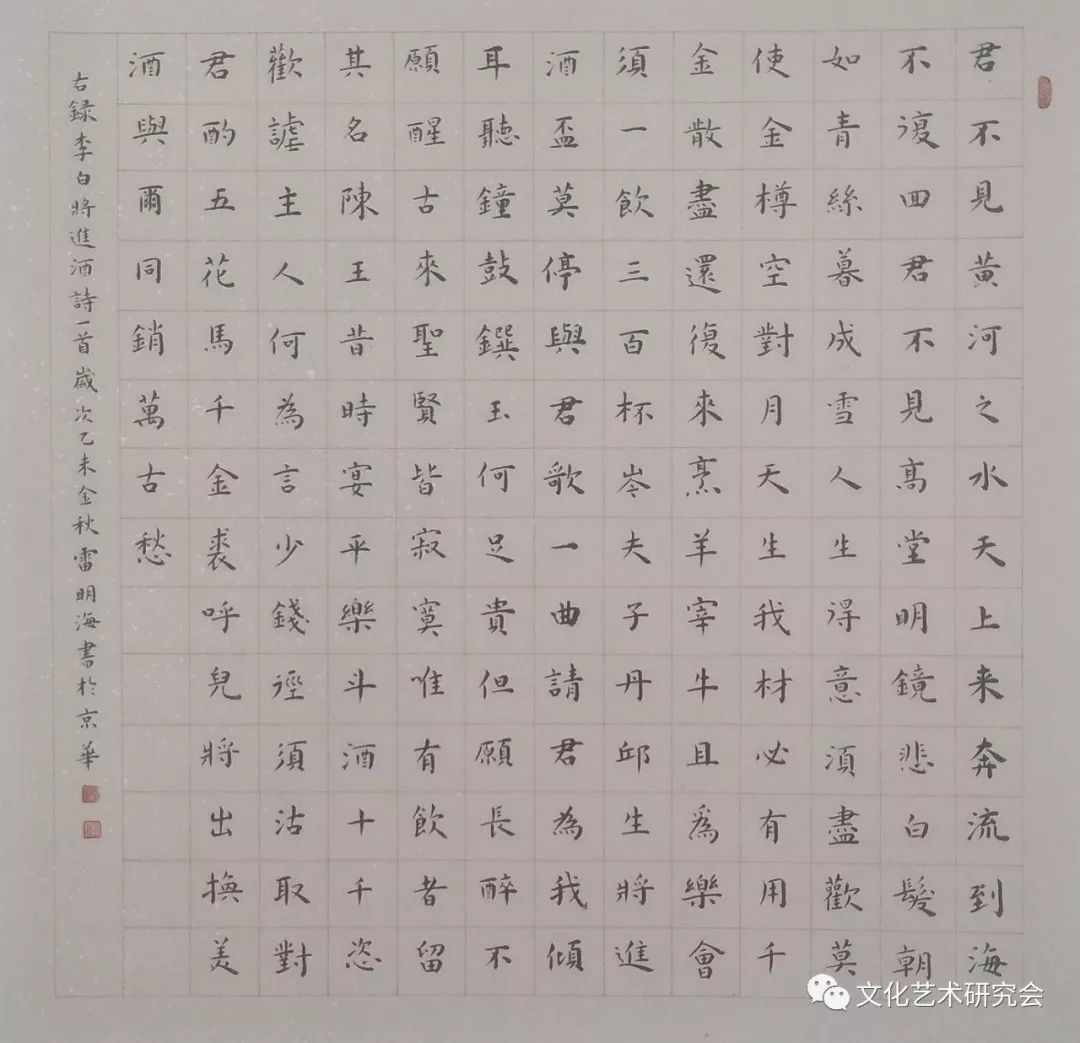 君不見黃河之水天上来奔流到海
不復回君不見高堂明鏡悲白髮朝
如青絲暮成雪人生得意須盡歡莫
使金樽空對月天生我材必有用千
金散盡還復來烹羊宰牛且爲樂會
須一飲三百杯岑夫子丹邱生將進
酒盃莫停與君歌一曲請君為我傾
耳聽鐘鼓饌玉何足貴但願長醉不
願醒古來聖賢皆寂寞唯有飲者留
其名陳王昔時宴平樂斗酒十千恣
歡謔主人何為言少錢徑須沽取對
君酌五花馬千金裘呼兒將出換美
酒與爾同銷萬古愁
右録李白將進酒詩一首歲次乙未金秋雷明海書於京華
文化艺术研究会